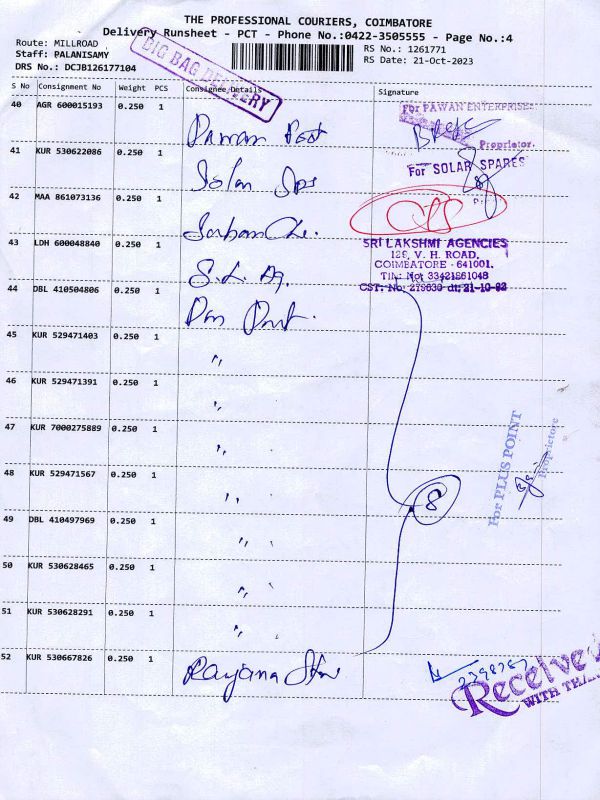 THE PROFESSIONAL COURIERS, COIMBATORE
Delivery Runsheet - PCT - Phone No.:0422-3505555 - Page No.:4
Route: MILLROAD
Staff: PALANISAMY
DRS No.: DCJB126177104
RS No.: 1261771
RS Date: 21-Oct-2023
BIG BAG DELIVERY
S No Consignment No Weight PCS Consignee Details Signature
40 AGR 600015193 0.250 1
For PAWAN ENTERPRISES
Proprietor.
41 KUR 530622086 0.250 1 Solar Sps
For SOLAR SPARES
42 MAA 861073136 0.250 1
43 LDH 600048840 0.250 1 S.L. Ag.
SRI LAKSHMI AGENCIES
126, V. H. ROAD,
COIMBATORE - 641001.
44 DBL 410504806 0.250 1
45 KUR 529471403 0.250 1 "
46 KUR 529471391 0.250 1 "
47 KUR 7000275889 0.250 1 "
48 KUR 529471567 0.250 1 "
8
For PLUS POINT
Proprietor
49 DBL 410497969 0.250 1 "
50 KUR 530628465 0.250 1 "
51 KUR 530628291 0.250 1 "
52 KUR 530667826 0.250 1
Received
WITH THA